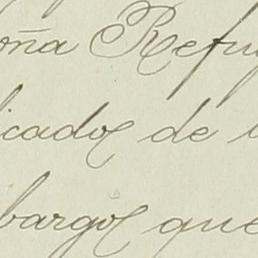 oña Refu
icados de l
bargos que